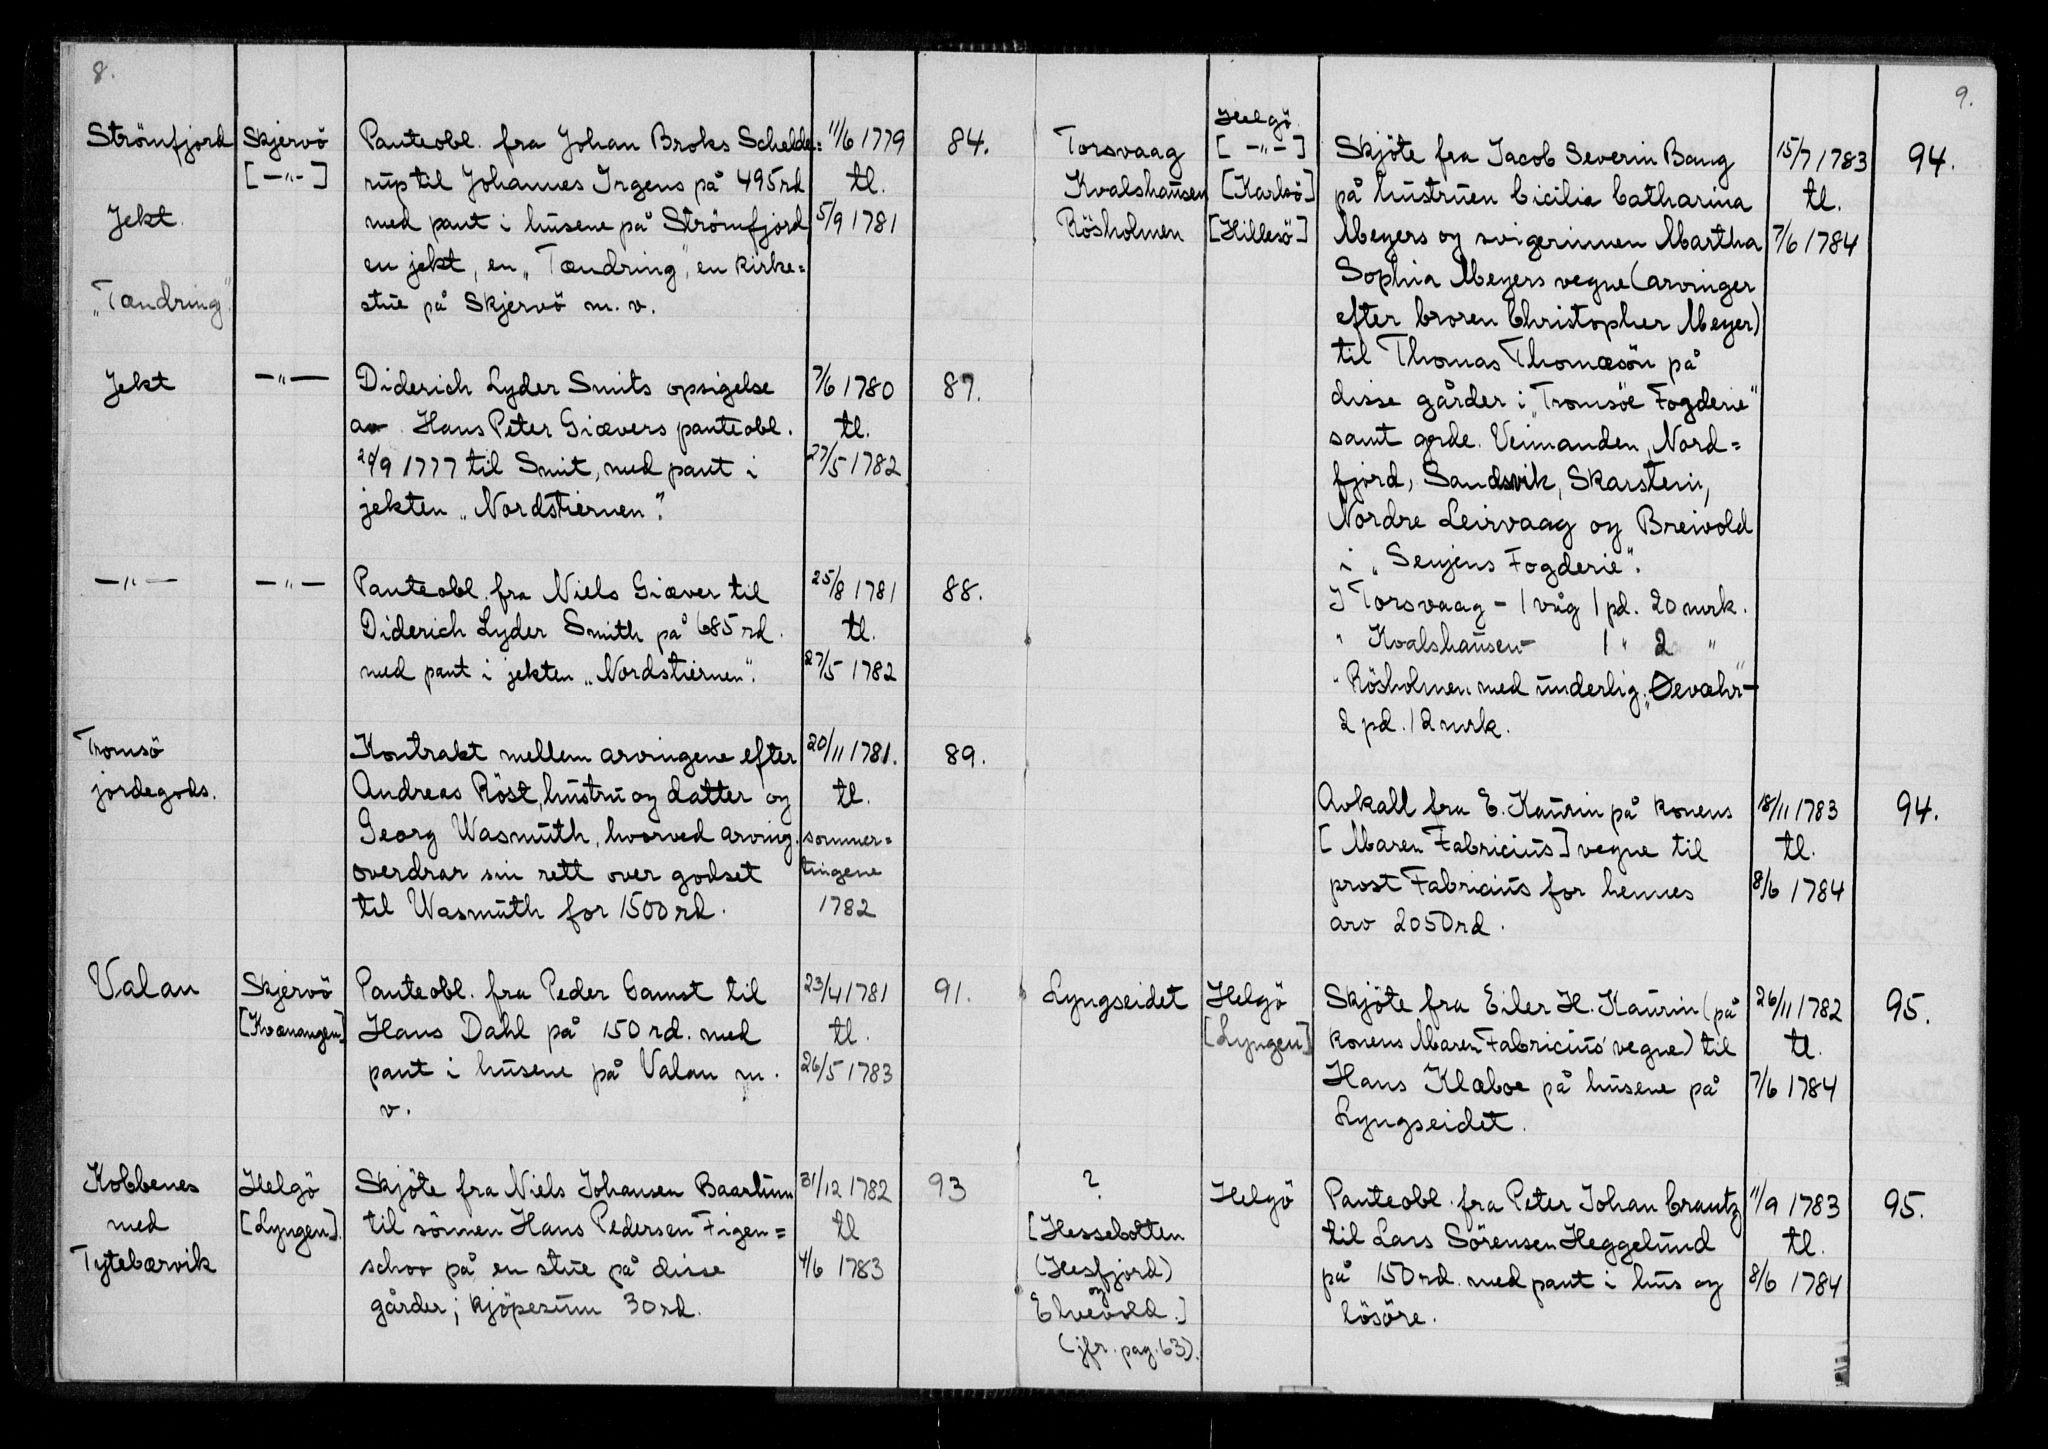 8.
Strömfjord Skjervö Panteobl. fra Johan Broks Schelde= 11/6 1779 84.
[-"-] rup til Johannes Irgens på 495 rd tl.
Jekt. med pant i husene på Strömfjord, 5/9 1781
en jekt, en „Tændring", en kirke=
„Tændring". stue på Skjervö m. v.
Jekt -"- Diderich Lyder Smits opsigelse 7/6 1780 87.
av Hans Peter Giævers panteobl. tl.
20/9 1777 til Smit, med pant i 27/5 1782
jekten „Nordstiernen".
-"- -"- Panteobl. fra Niels Giæver til 25/8 1781 88.
Diderich Lyder Smith på 685 rd. tl.
med pant i jekten „Nordstiernen". 27/5 1782
Tromsö Kontrakt mellem arvingene efter 20/11 1781. 89.
jordegods. Andreas Röst, hustru og datter og tl.
Georg Wasmuth, hvorved arving. sommer=
overdrar sin rett over godset tingene
til Wasmuth for 1500 rd. 1782
Valan Skjervö Panteobl. fra Peder Gamst til 23/4 1781 91.
[Kvænangen] Hans Dahl på 150 rd. med tl.
pant i husene på Valan m. 26/5 1783
v.
Kobbenes Helgö Skjöte fra Niels Johansen Baarlum 31/12 1782 93
med [Lyngen]. til sönnen Hans Pedersen Figen= tl
Tytebærvik schov på en stue på disse 4/6 1783
gårder; kjöpesum 30 rd.
9.
Helgö.
Torsvaag [-"-] Skjöte fra Jacob Severin Bang 15/7 1783 94.
Kvalshausen [Karlsö] på hustruen Cicilia Catharina tl.
Rösholmen [Hillesö] Meyers og svigerinnen Martha 7/6 1784
Sophia Meyers vegne (arvinger
efter broren Christopher Meyer)
til Thomas Thomæsön på
disse gårder i „Tromsöe Fogderie"
samt gorde. Veimanden, Nord=
fjord, Sandsvik, Skarstein,
Nordre Leirvaag og Breivold
i „Senjens Fogderie".
I Torsvaag - 1 våg 1 pd. 20 mrk.
" Kvalshausen - 1 " 2 "
" Rösholmen med underlig. „Øevæhr" -
2 pd. 12 mrk.
Avkall fra E. Kaurin på konens 18/11 1783 94.
[Maren Fabricius] vegne til tl.
prost Fabricius for hennes 8/6 1784
arv 2050 rd.
Lyngseidet Helgö Skjöte fra Eiler H. Kaurin (på 26/11 1782 95.
[Lyngen] konens Maren Fabricius' vegne) til tl.
Hans Klæboe på husene på 7/6 1784
Lyngseidet.
? Helgö Panteobl. fra Peter Johan Crantz 11/9 1783 95.
[Hessebotten til Lars Sörensen Heggelund tl.
(Hesfjord) på 150 rd. med pant i hus og 8/6 1784
og
Elvevold.] lösöre.
(jfr. pag. 63).